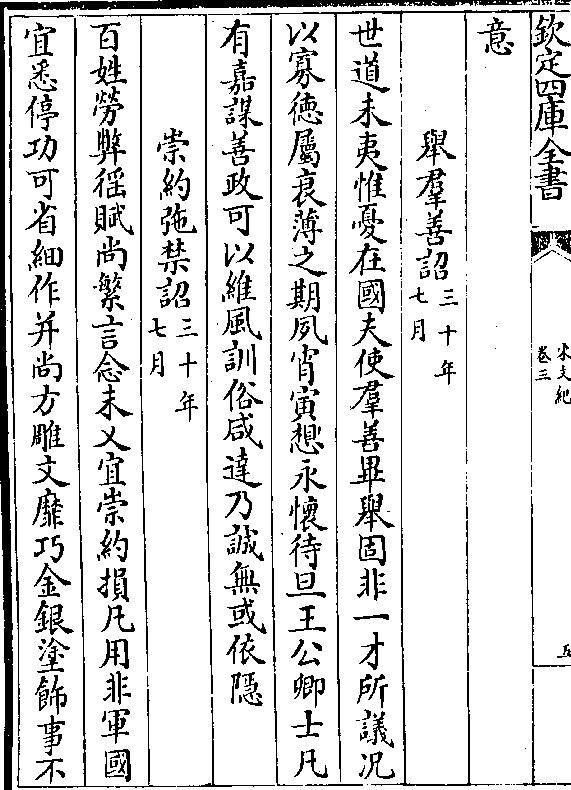 欽定四庫全書
宋文紀
卷三
五
意
舉羣善詔三十年
七月
世道未夷惟憂在國夫使羣善畢舉固非一才所議况
以寡徳屬衰薄之期夙宵寅想永懷待旦王公卿士凡
有嘉謀善政可以維風訓俗咸達乃誠無或依隱
崇約弛禁詔三十年
七月
百姓勞弊徭賦尚繁言念未乂宜崇約損凡用非軍國
宜悉停功可省細作并尚方雕文靡巧金銀塗飾事不